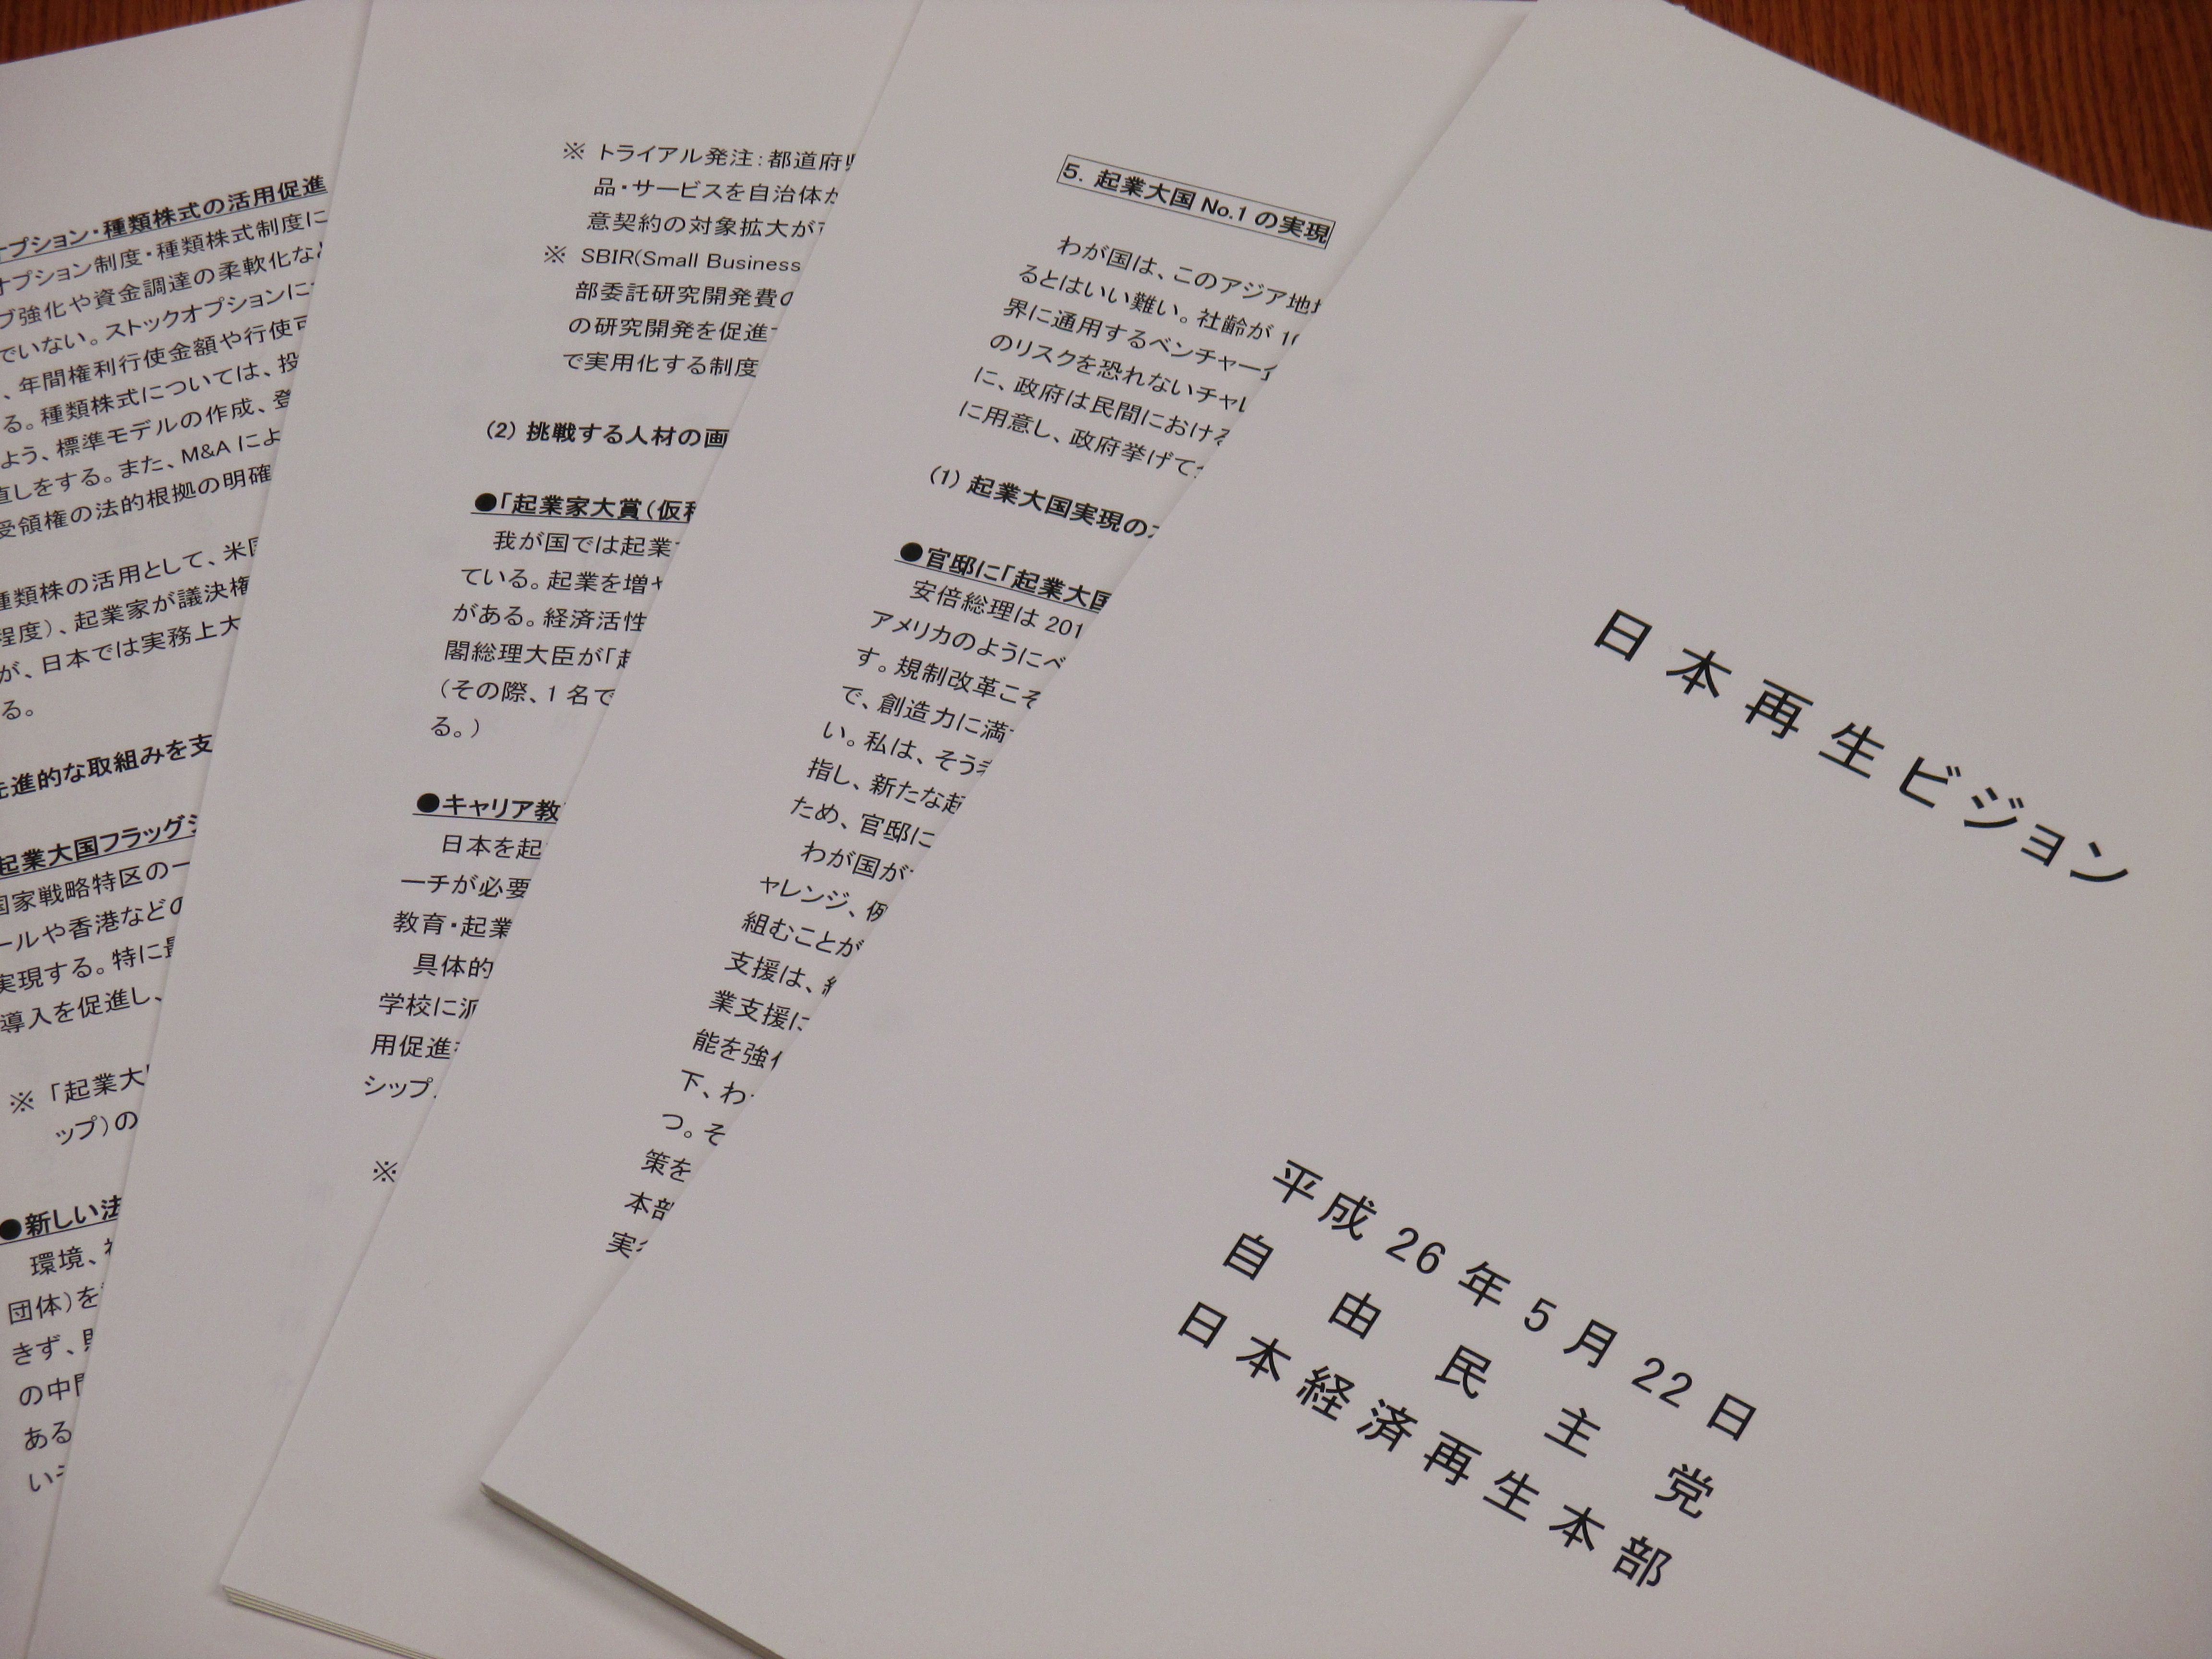 オプション・種類株式の活用促進
オプション制度・種類株式制度に
ブ強化や資金調達の柔軟化など
でいない。ストックオプションに
、年間権利行使金額や行使可
る。種類株式については、投
よう、標準モデルの作成、登
直しをする。また、M&A によ
受領権の法的根拠の明確
種類株の活用として、米国
程度）、起業家が議決権
が、日本では実務上大
る。
先進的な取組みを支
起業大国フラッグシ
国家戦略特区の一
ールや香港などの
実現する。特に最
導入を促進し、
※ 「起業大
ップ）の
●新しい法
環境、
団体）を
きず、
の中
ある
い
※ トライアル発注：都道府県
品・サービスを自治体が
意契約の対象拡大が
※ SBIR(Small Business
部委託研究開発費の
の研究開発を促進
で実用化する制度
(2) 挑戦する人材の画
●「起業家大賞（仮称
我が国では起業
ている。起業を増や
がある。経済活性
閣総理大臣が「起
（その際、1 名で
る。）
●キャリア教
日本を起
ーチが必要
教育・起業
具体的
学校に派
用促進
シップ
※
5. 起業大国 No.1 の実現
わが国は、このアジア地
るとはいい難い。社齢が 10
界に通用するベンチャー企
のリスクを恐れないチャレ
に、政府は民間における
に用意し、政府挙げて
(1) 起業大国実現の
●官邸に「起業大国
安倍総理は 201
アメリカのようにベ
す。規制改革こそ
で、創造力に満
い。私は、そう考
指し、新たな起
ため、官邸に
わが国が
ャレンジ、例
組むことが
支援は、
業支援に
能を強化
下、わ
つ。そ
策を
本部
実
日本再生ビジョン
平成 26 年 5 月 22 日
自由民主党
日本経済再生本部